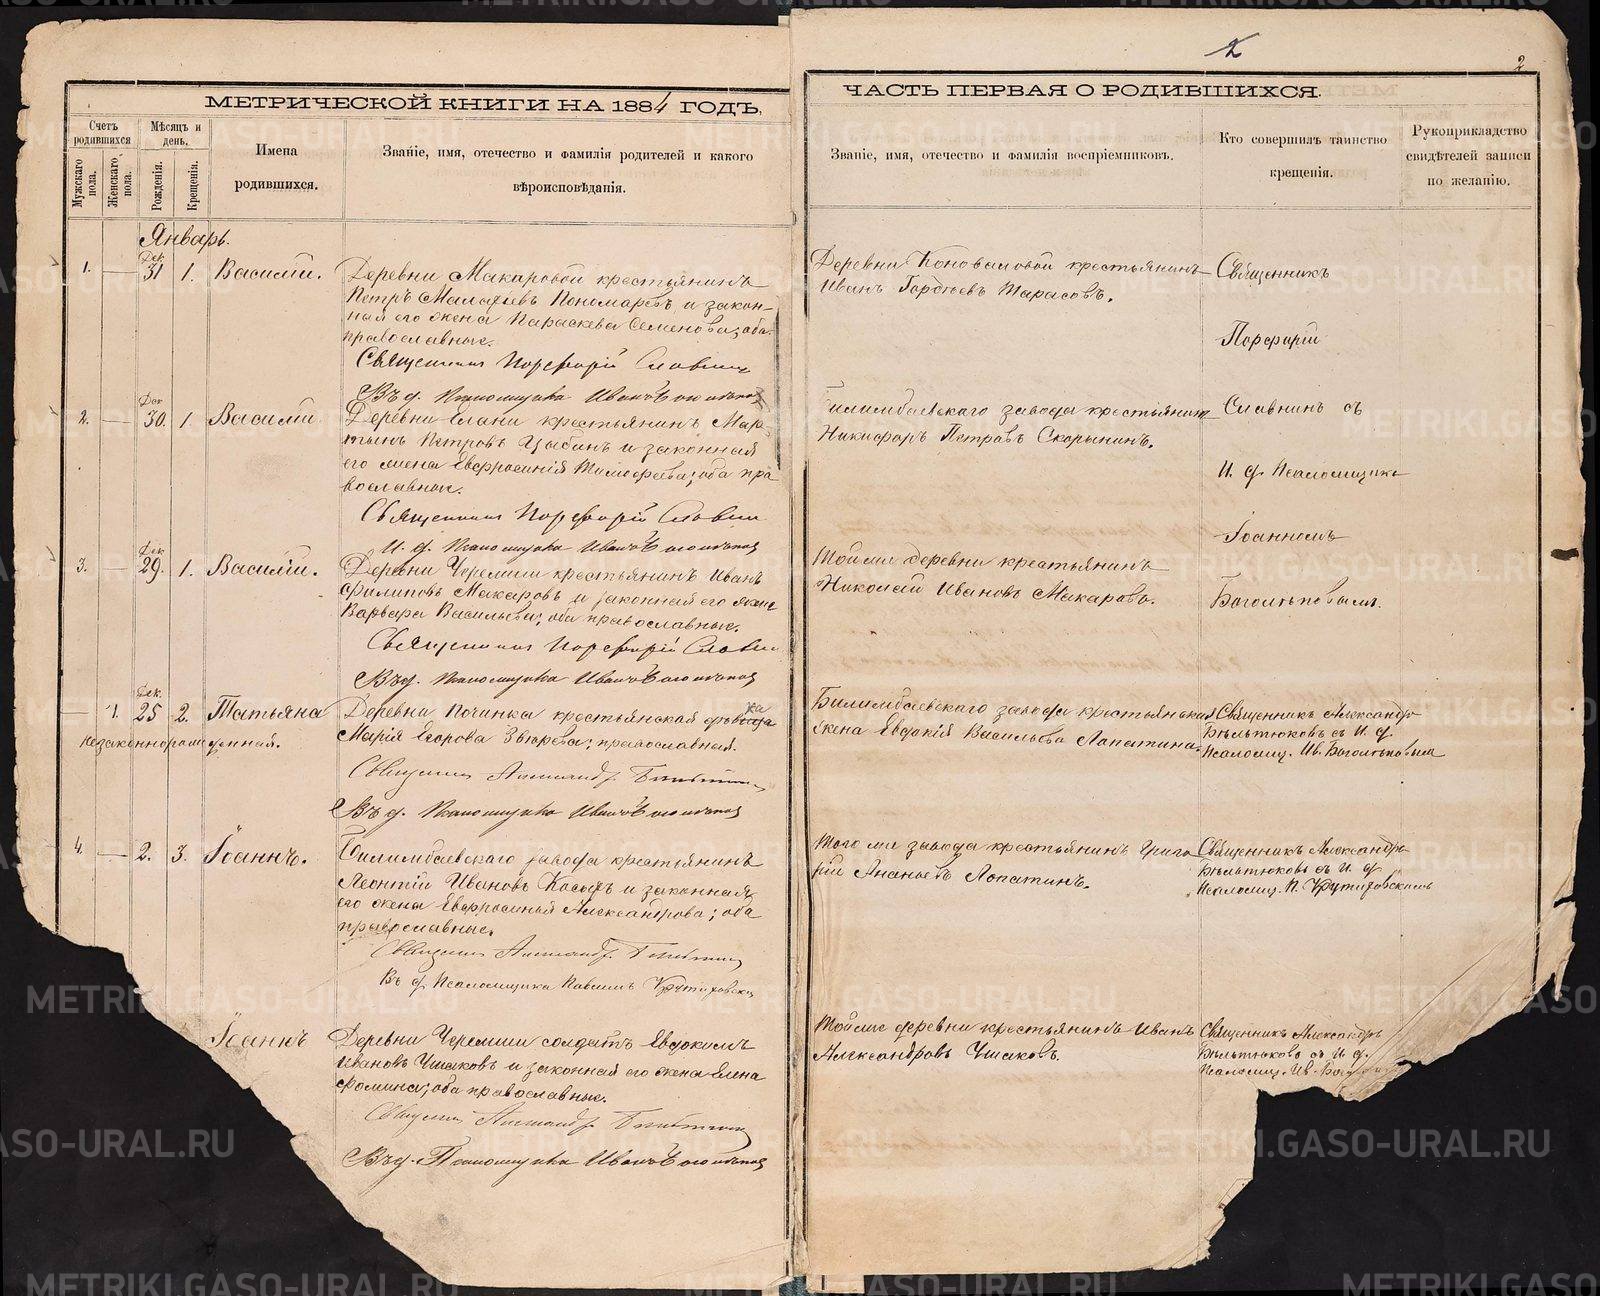 МЕТРИЧЕСКОЙ КНИГИ НА 1884 ГОДЪ,
Счетъ родившихся
Мужскаго пола.
Женскаго пола.
Мѣсяцъ и день.
Рожденія.
Крещенія.
Имена
родившихся.
Званіе, имя, отечество и фамилія родителей и какого
вѣроисповѣданія.
Январь.
1. — Дек. 31 1. Василій.
Деревни Макаровой крестьянинъ
Петръ Малафіевъ Пономаревъ и закон-
ная его жена Параскева Семенова; оба
православные.
Священникъ Порфирій Славнинъ
Въ д. Псаломщика Иванъ Боголѣповъ
2. — Дек 30. 1. Василій
Деревни Елани крестьянинъ Мар-
тынъ Петровъ Цыбинъ и законная
его жена Евфросинія Тимофеева; оба пра
вославные.
Священникъ Порфирій Славнинъ
И. д. Псаломщика Иванъ Боголѣповъ
3. — Дек 29. 1. Василій.
Деревни Черемши крестьянинъ Иванъ
Филиповъ Макаровъ и законная его жена
Варвара Васильева; оба православные.
Священникъ Порфирій Славнинъ
Въ д. Псаломщика Иванъ Боголѣповъ
— 1. Дек. 25 2. Татьяна
незаконнорожденная.
Деревни Починка крестьянская дѣвка
Марія Егорова Звѣрева; православная.
Священникъ Александръ Бѣльтюковъ
Въ д. Псаломщика Иванъ Боголѣповъ
4. — 2. 3. Іоаннъ.
Билимбаевскаго завода крестьянинъ
Леонтій Ивановъ Косыхъ и законная
его жена Евфросинья Александрова; оба
православные.
Священникъ Александръ Бѣльтюковъ
Въ д Псаломщика Павелъ Крутиховскій
Іоаннъ
Деревни Черемши солдатъ Евдокимъ
Ивановъ Чшаковъ и законная его жена Елена
Фомина; оба православные.
Священникъ Александръ Бѣльтюковъ
Въ д. Псаломщика Иванъ Боголѣповъ
2
2
ЧАСТЬ ПЕРВАЯ О РОДИВШИХСЯ.
Званіе, имя, отечество и фамилія воспріемниковъ.
Кто совершилъ таинство
крещенія.
Рукоприкладство
свидѣтелей записи
по желанію.
Деревни Коноваловой крестьянинъ
Иванъ Гордѣевъ Тарасовъ.
Священникъ
Порфирій
Билимбаевскаго завода крестьянинъ
Никифоръ Петровъ Скорынинъ.
Славнинъ съ
И. д. Псаломщика
Іоанномъ
Тойже деревни крестьянинъ
Николай Ивановъ Макаровъ.
Боголѣповымъ.
Билимбаевскаго завода крестьянская
жена Евдокія Васильева Лопатина.
Священникъ Александръ
Бѣльтюковъ съ И. д.
Псаломщ. Ив. Боголѣповым
Того же завода крестьянинъ Григо
рій Ананьевъ Лопатинъ.
Священникъ Александръ
Бѣльтюковъ съ И. д
Псаломщ. П. Крутиховскимъ
Тойже деревни крестьянинъ Иванъ
Александровъ Чшаковъ.
Священникъ Александръ
Бѣльтюковъ съ И. д.
Псаломщ. Ив. Бого
METRIKI.GASO-URAL.RU